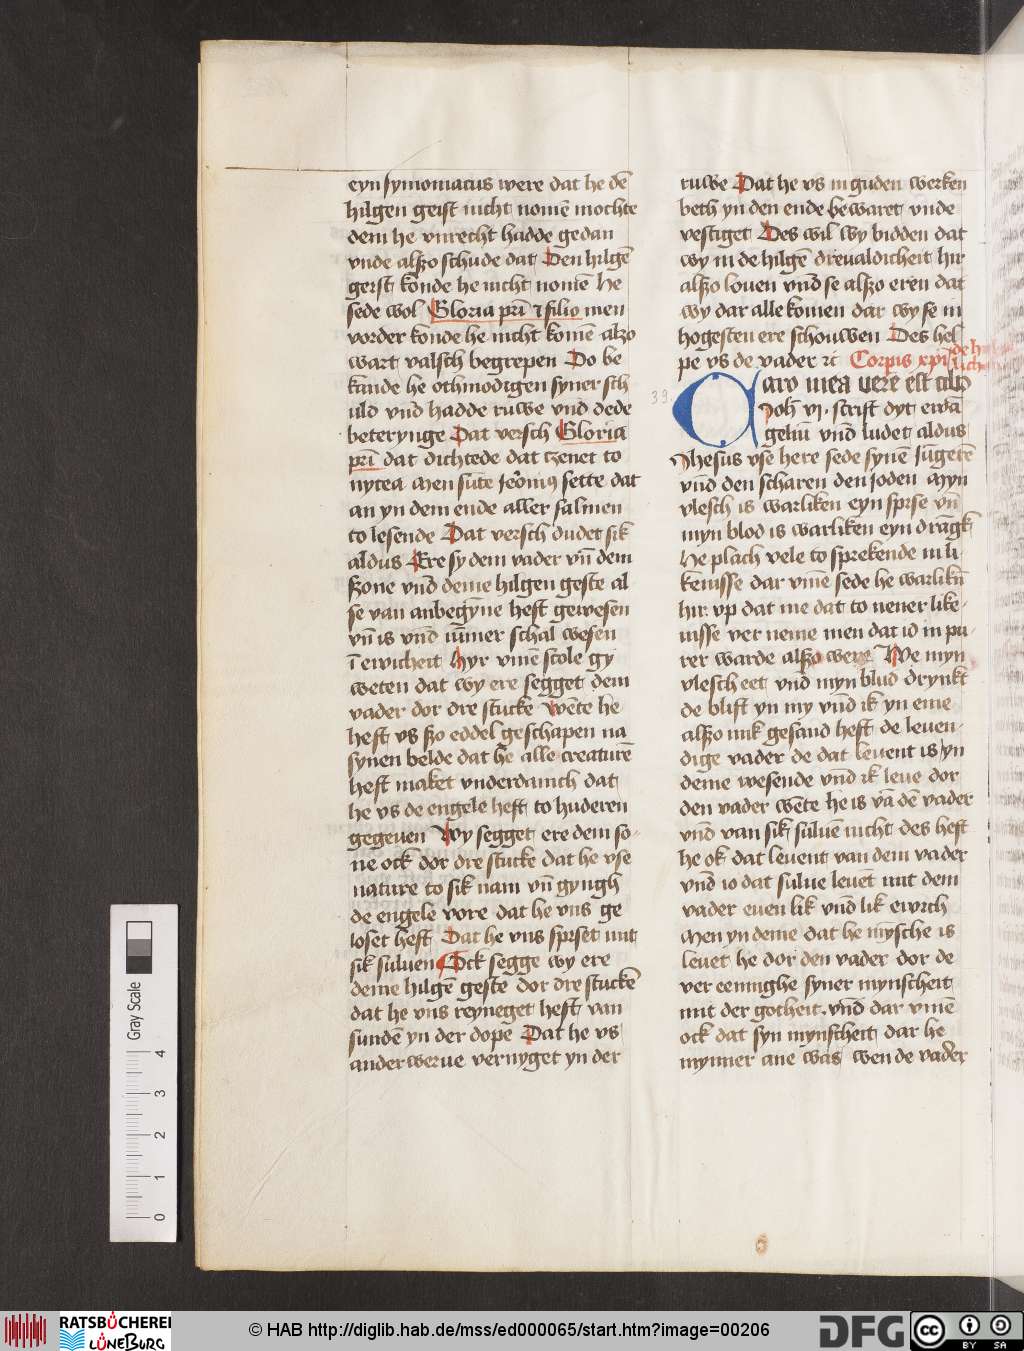 eyn symoniacus were dat he dē
hilgen geist nicht nomē mochte
dem he vnrecht hadde gedan
vnde alszo schude dat Den hilgē
geist konde he nicht nomē he
sede wol Gloria pr̄i ⁊ filio men
vorder konde he nicht komē alzo
wart valsch begrepen Do be
kande he othmodigen syner sch
uld vnd hadde ruwe vnd dede
beterynge Dat versch Gloria
pr̄i dat dichtede dat to
nycea Men sūte jeronimꝰ sette dat
an yn dem ende aller salmen
to lesende Dat versch dudet sik
aldus Ere sy dem vader vn̄ dem
szone vnd deme hilgen geste al
se van anbegȳne heft gewesen
vn̄ is vnd iūmer schal wesen
ī ewicheit Hyr vmē scole gy
weten dat wy ere segget dem
vader dor dre stucke wēte he
heft vs szo eddel geschapen na
synen belde dat he alle creaturē
heft maket vnderdanich dat
he vs de engele heft to huderen
gegeuen Wy segget ere dem so-
ne ock dor dre stucke dat he vse
nature to sik nam vn̄ gyngh
de engele vore dat he vns ge
loset heft Dat he vns spiset mit
sik suluen Ock segge wy ere
deme hilgē geste dor dre stuckē
dat he vns reyneget heft van
sundē yn der dope Dat he vs
anderwerue vernyget yn der
ruwe Dat he vs in guden werken
beth yn den ende bewaret vnde
vestiget Des wil wy bidden dat
wy in de hilgē dreualdicheit hir
alszo louen vnd se alszo eren dat
wy dar alle komen dar wy se in
hogesten ere schouwen Des hel
pe vs de vader ⁊c Corpis xp̄i
39.
Caro mea uere est cibꝰ
Joh̄ vi. scrift dyt ewā
geliū vnd ludet aldus
Jhesus vse here sede synē jūgerē
vnd den scharen den joden Myn
vlesch is warliken eyn spise vn̄
myn blod is warliken eyn drāgk
He plach vele to sprekende in li-
kenisse dar vmē sede he warlikn̄
hir. vp dat me dat to nener like-
nisse ver neme men dat id in pu-
rer warde alszo were We myn
vlesch eet vnd myn blud drynkt
de blift yn my vnd ik yn eme
alszo mik gesand heft de leuen-
dige vader de dat leuent is yn
deme wesende vnd ik leue dor
den vader wēte he is vā dē vader
vnd van sik suluē nicht des heft
he ok dat leuent van dem vader
vnd io dat sulue leuēt mit dem
vader euen lik vnd lik ewich
Men yn deme dat he mysche is
leuet he dor den vader dor de
ver eeninghe syner mynscheit
mit der gotheit. vnd dar vmē
ock dat syn mynscheit dar he
mynner ane was wen de vader
Gray Scale
4
3
2
1
0
RATSBÜCHEREI
LÜNEBURG
© HAB http://diglib.hab.de/mss/ed000065/start.htm?image=00206
DFG
cc
BY
SA